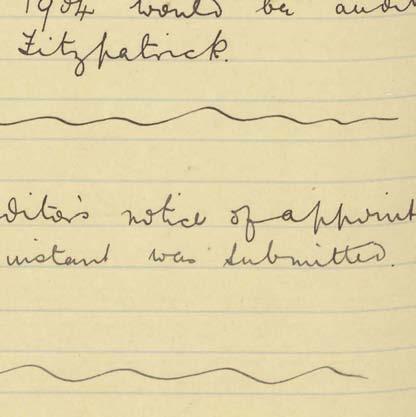 1904 would be audit
Fitzpatrick.
ditor's notice of appoint
instant was submitted.